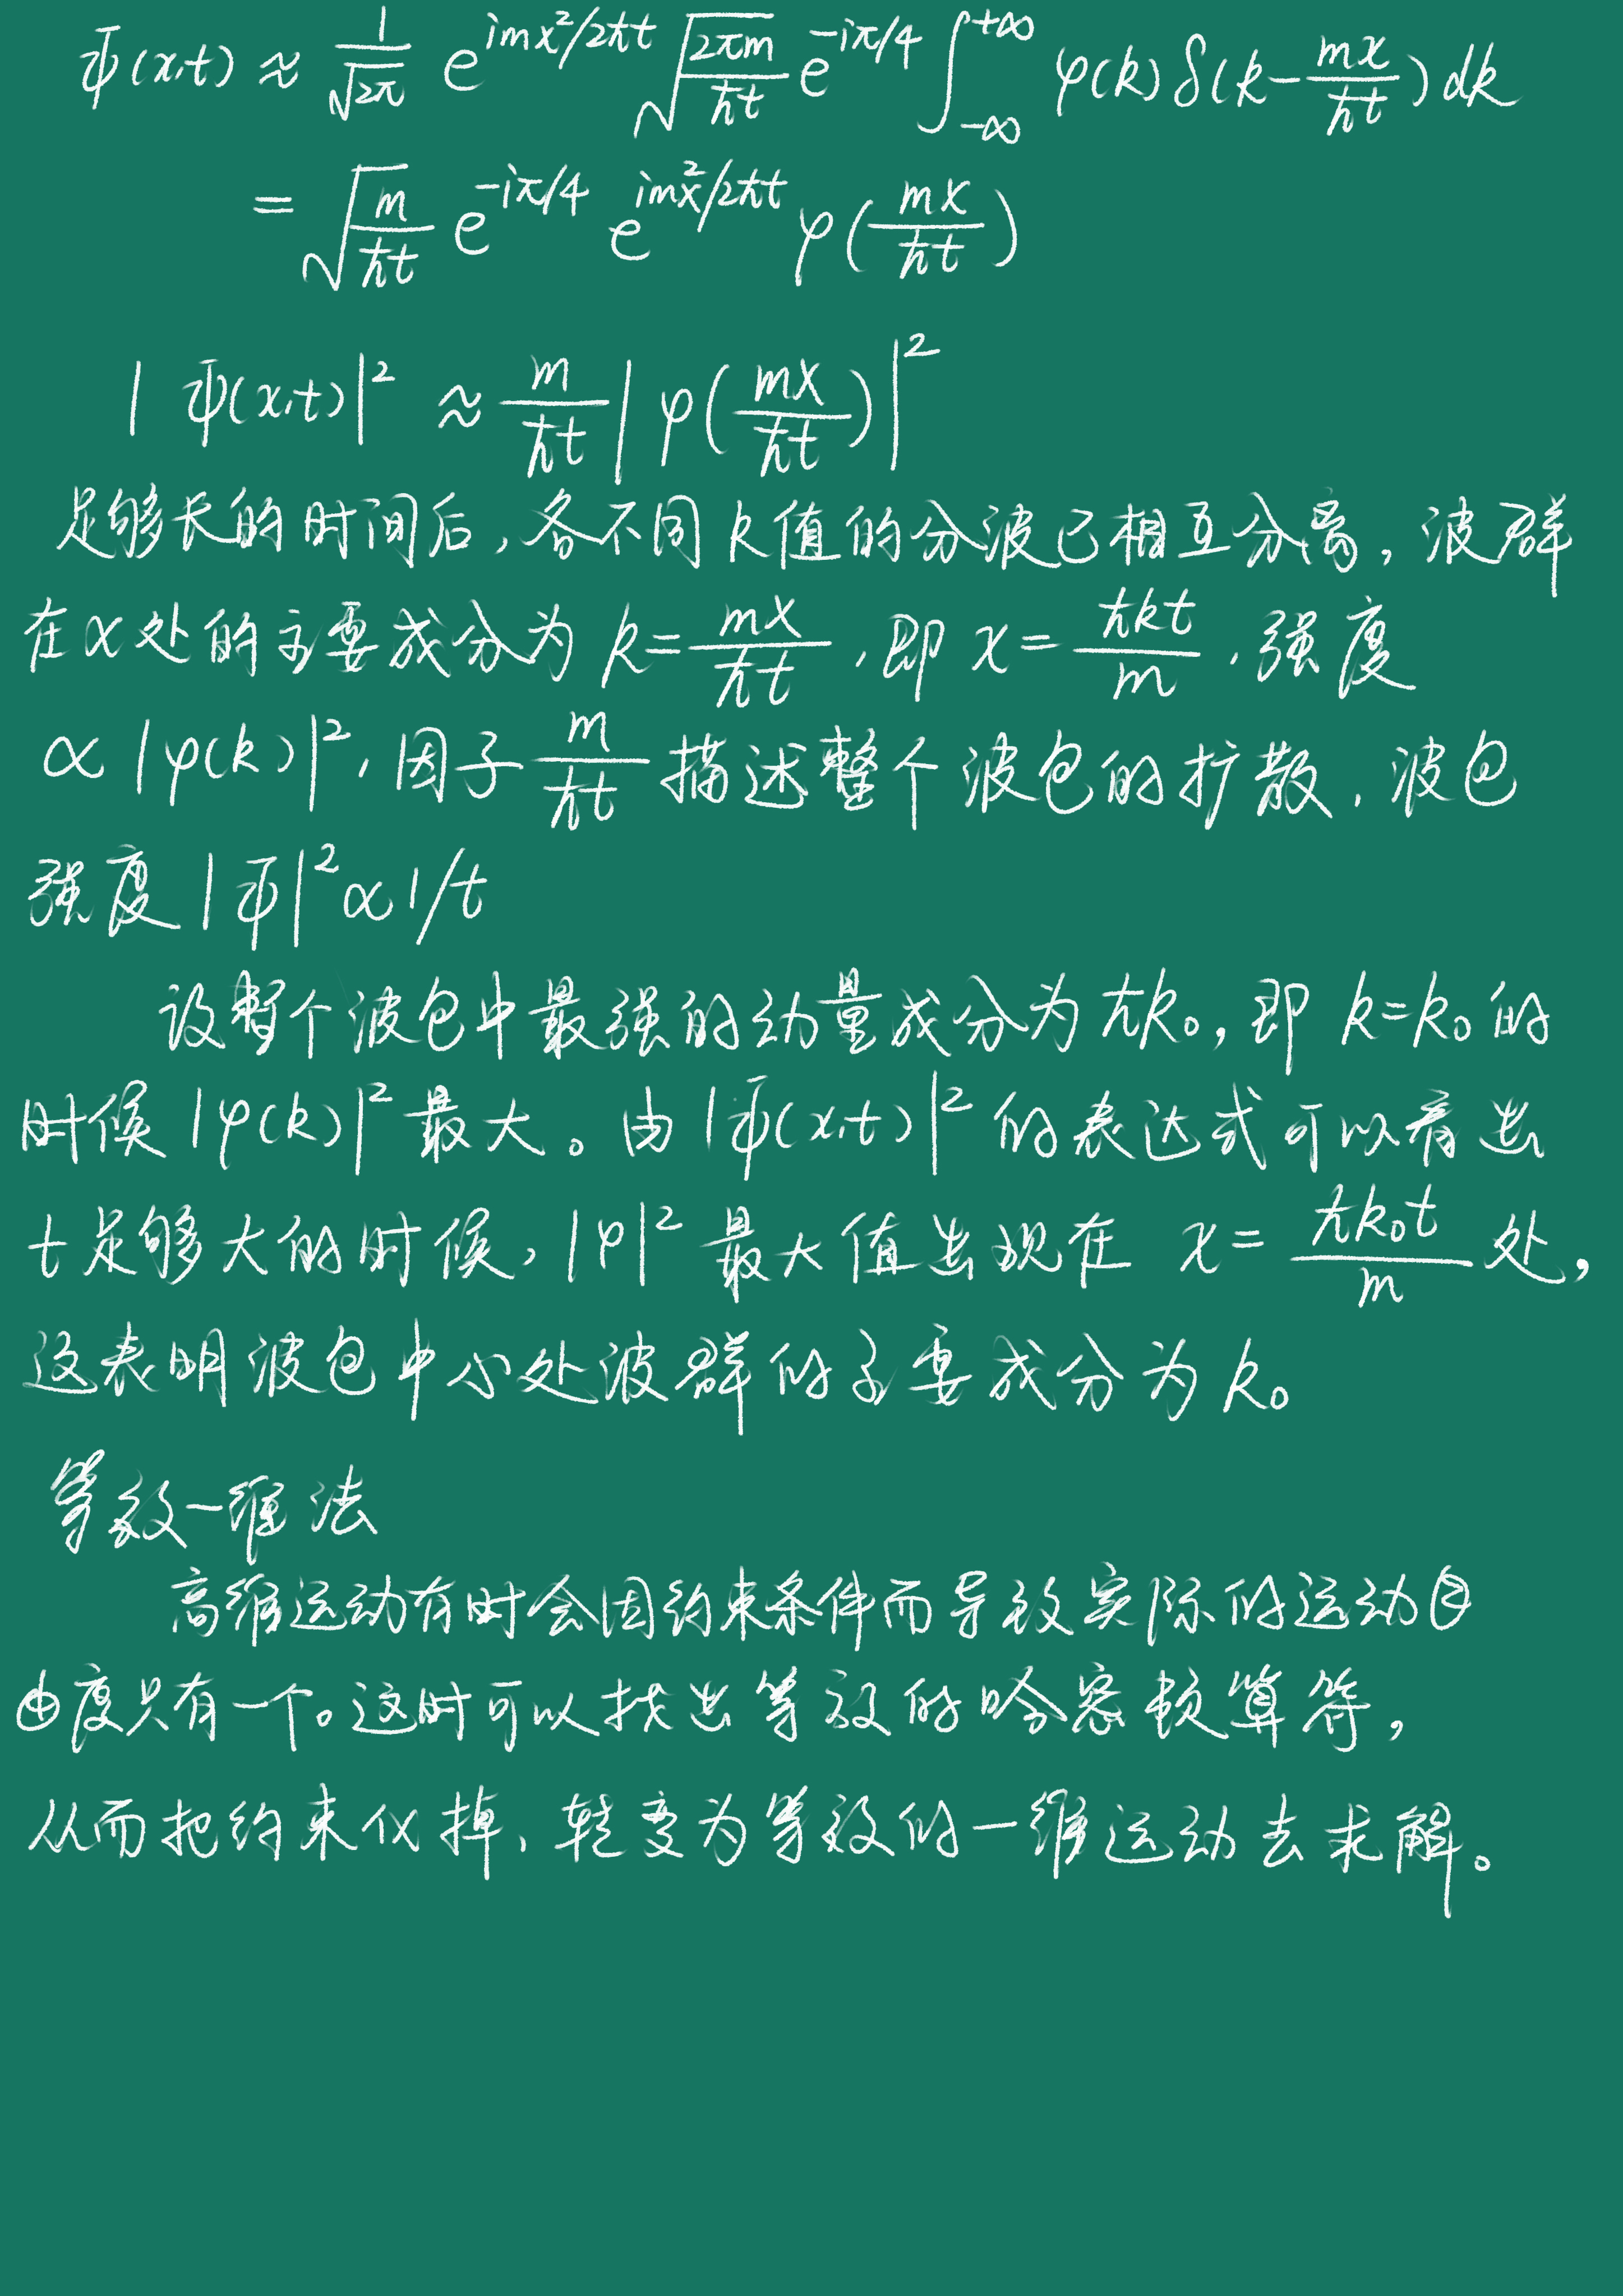 Ψ(x,t) ≈ 1/√(2π) e^{imx²/2ħt} √(2πm/ħt) e^{-iπ/4} ∫_{-∞}^{+∞} φ(k) δ(k - mx/ħt) dk
= √(m/ħt) e^{-iπ/4} e^{imx²/2ħt} φ(mx/ħt)
|Ψ(x,t)|² ≈ m/ħt |φ(mx/ħt)|²
足够长的时间后,各不同k值的分波已相互分离,波群
在x处的主要成分为 k = mx/ħt,即 x = ħkt/m,强度
∝ |φ(k)|²,因子 m/ħt 描述整个波包的扩散,波包
强度 |Ψ|² ∝ 1/t
设整个波包中最强的动量成分为ħk₀,即 k=k₀的
时候 |φ(k)|² 最大。由 |Ψ(x,t)|² 的表达式可以看出
t足够大的时候,|φ|² 最大值出现在 x = ħk₀t/m 处,
这表明波包中心处波群的主要成分为k₀
等效一维法
高维运动有时会因约束条件而导致实际的运动自
由度只有一个。这时可以找出等效的哈密顿算符,
从而把约束化掉,转变为等效的一维运动去求解。